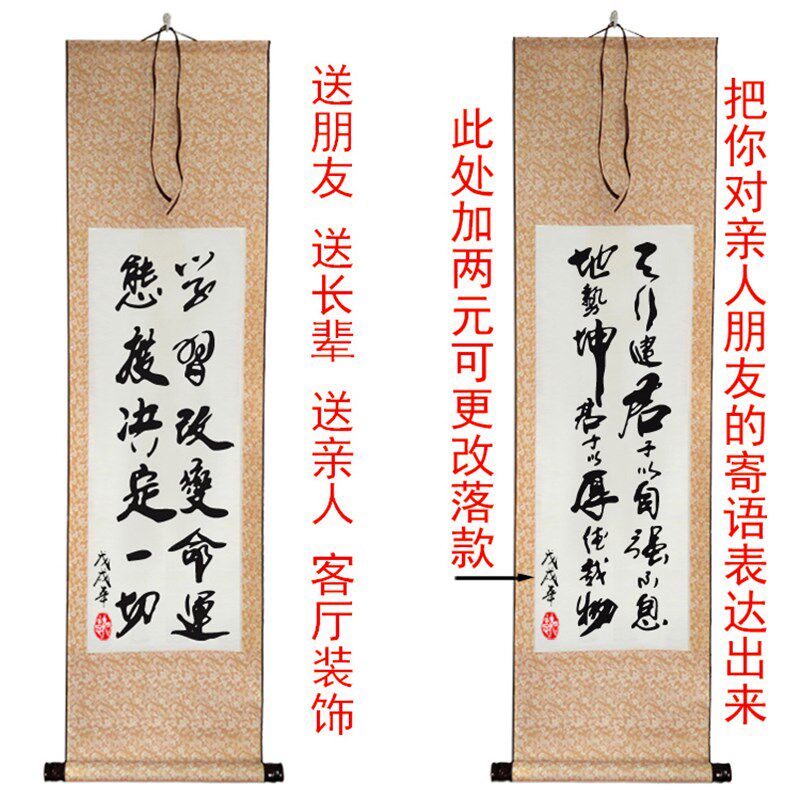 学習改變命運
態度决定一切
戊戌年
送朋友 送长辈 送亲人 客厅装饰
此处加两元可更改落款
天行健君子以自强不息
地勢坤君子以厚德载物
戊戌年
把你对亲人朋友的寄语表达出来